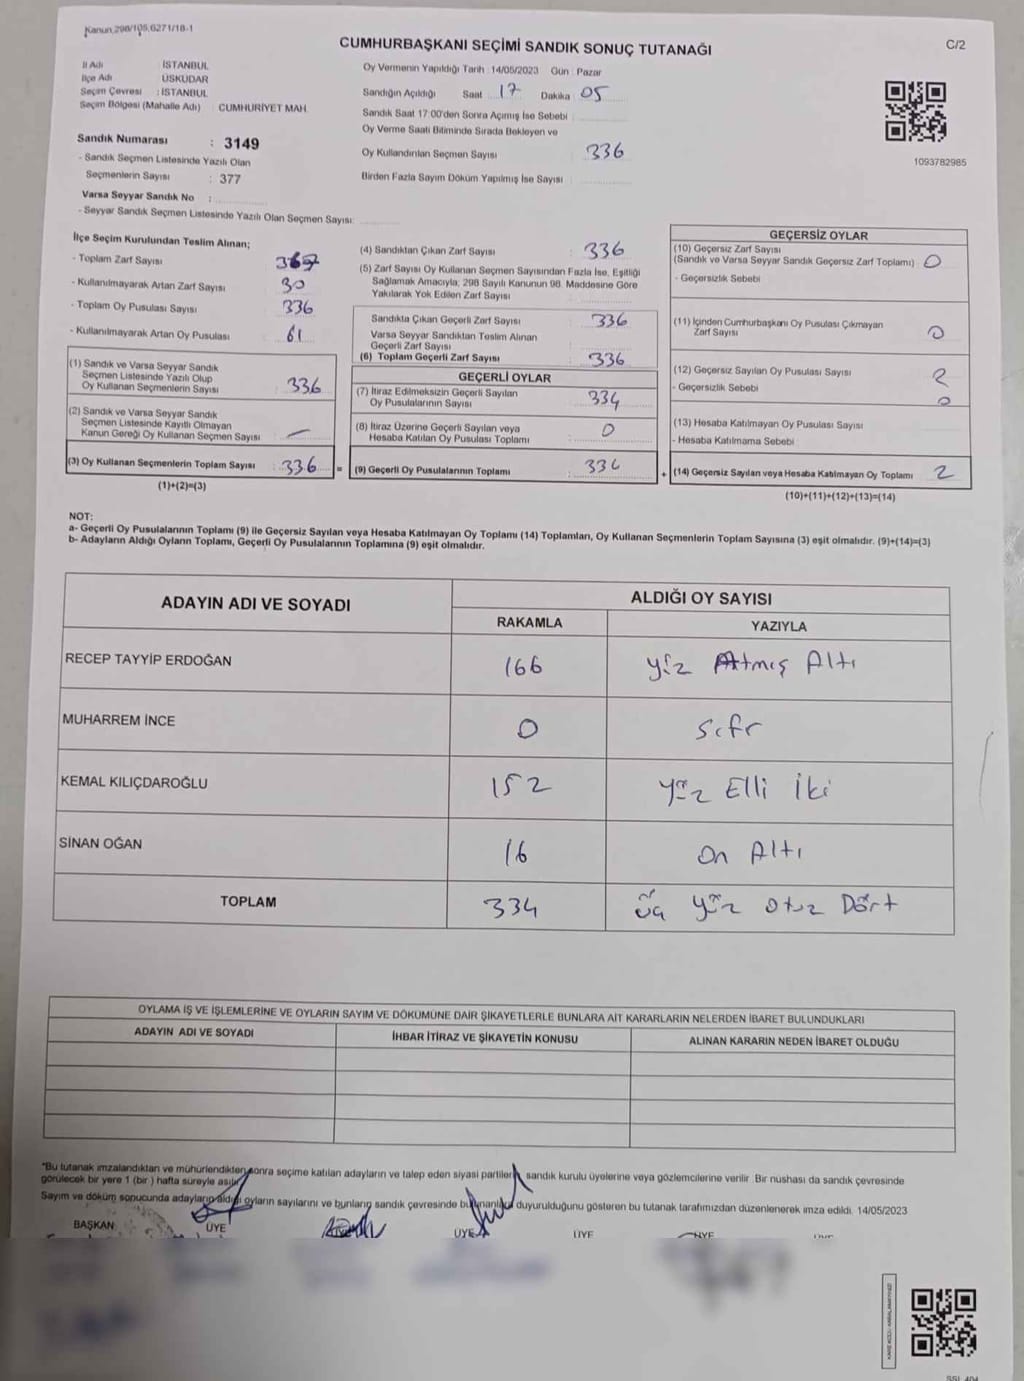 Kanun,298/105,6271/18-1
C/2
CUMHURBAŞKANI SEÇİMİ SANDIK SONUÇ TUTANAĞI
İl Adı : İSTANBUL
İlçe Adı : ÜSKÜDAR
Seçim Çevresi : İSTANBUL
Seçim Bölgesi (Mahalle Adı) : CUMHURİYET MAH.
Sandık Numarası : 3149
- Sandık Seçmen Listesinde Yazılı Olan
Seçmenlerin Sayısı : 377
Varsa Seyyar Sandık No :
- Seyyar Sandık Seçmen Listesinde Yazılı Olan Seçmen Sayısı:
Oy Vermenin Yapıldığı Tarih : 14/05/2023 Gün : Pazar
Sandığın Açıldığı Saat 17 Dakika 05
Sandık Saat 17:00'den Sonra Açmış İse Sebebi :
Oy Verme Saati Bitiminde Sırada Bekleyen ve
Oy Kullandırılan Seçmen Sayısı : 336
Birden Fazla Sayım Döküm Yapılmış İse Sayısı :
1093782985
İlçe Seçim Kurulundan Teslim Alınan;
- Toplam Zarf Sayısı
- Kullanılmayarak Artan Zarf Sayısı : 30
- Toplam Oy Pusulası Sayısı : 336
- Kullanılmayarak Artan Oy Pusulası : 61
(1) Sandık ve Varsa Seyyar Sandık
Seçmen Listesinde Yazılı Olup
Oy Kullanan Seçmenlerin Sayısı : 336
(2) Sandık ve Varsa Seyyar Sandık
Seçmen Listesinde Kayıtlı Olmayan
Kanun Gereği Oy Kullanan Seçmen Sayısı : —
(3) Oy Kullanan Seçmenlerin Toplam Sayısı : 336 =
(1)+(2)=(3)
(4) Sandıktan Çıkan Zarf Sayısı : 336
(5) Zarf Sayısı Oy Kullanan Seçmen Sayısından Fazla İse, Eşitliği
Sağlamak Amacıyla; 298 Sayılı Kanunun 98. Maddesine Göre
Yakılarak Yok Edilen Zarf Sayısı :
Sandıkta Çıkan Geçerli Zarf Sayısı : 336
Varsa Seyyar Sandıktan Teslim Alınan
Geçerli Zarf Sayısı :
(6) Toplam Geçerli Zarf Sayısı : 336
GEÇERLİ OYLAR
(7) İtiraz Edilmeksizin Geçerli Sayılan
Oy Pusulalarının Sayısı : 334
(8) İtiraz Üzerine Geçerli Sayılan veya
Hesaba Katılan Oy Pusulası Toplamı : 0
(9) Geçerli Oy Pusulalarının Toplamı : 334 +
GEÇERSİZ OYLAR
(10) Geçersiz Zarf Sayısı
(Sandık ve Varsa Seyyar Sandık Geçersiz Zarf Toplamı) : 0
- Geçersizlik Sebebi
(11) İçinden Cumhurbaşkanı Oy Pusulası Çıkmayan
Zarf Sayısı : 0
(12) Geçersiz Sayılan Oy Pusulası Sayısı : 2
- Geçersizlik Sebebi : 0
(13) Hesaba Katılmayan Oy Pusulası Sayısı :
- Hesaba Katılmama Sebebi
(14) Geçersiz Sayılan veya Hesaba Katılmayan Oy Toplamı : 2
(10)+(11)+(12)+(13)=(14)
NOT:
a- Geçerli Oy Pusulalarının Toplamı (9) ile Geçersiz Sayılan veya Hesaba Katılmayan Oy Toplamı (14) Toplamları, Oy Kullanan Seçmenlerin Toplam Sayısına (3) eşit olmalıdır. (9)+(14)=(3)
b- Adayların Aldığı Oyların Toplamı, Geçerli Oy Pusulalarının Toplamına (9) eşit olmalıdır.
ADAYIN ADI VE SOYADI ALDIĞI OY SAYISI
RAKAMLA YAZIYLA
RECEP TAYYİP ERDOĞAN 166 yüz Atmış Altı
MUHARREM İNCE 0 Sıfır
KEMAL KILIÇDAROĞLU 152 yüz Elli İki
SİNAN OĞAN 16 On Altı
TOPLAM 334 üç yüz otuz Dört
OYLAMA İŞ VE İŞLEMLERİNE VE OYLARIN SAYIM VE DÖKÜMÜNE DAİR ŞİKAYETLERLE BUNLARA AİT KARARLARIN NELERDEN İBARET BULUNDUKLARI
ADAYIN ADI VE SOYADI İHBAR İTİRAZ VE ŞİKAYETİN KONUSU ALINAN KARARIN NEDEN İBARET OLDUĞU
*Bu tutanak imzalandıktan ve mühürlendikten sonra seçime katılan adayların ve talep eden siyasi partilerin sandık kurulu üyelerine veya gözlemcilerine verilir. Bir nüshası da sandık çevresinde
görülecek bir yere 1 (bir ) hafta süreyle asılır.
Sayım ve döküm sonucunda adayların aldığı oyların sayılarını ve bunların sandık çevresinde bulunanlara duyurulduğunu gösteren bu tutanak tarafımızdan düzenlenerek imza edildi. 14/05/2023
BAŞKAN ÜYE ÜYE ÜYE ÜYE